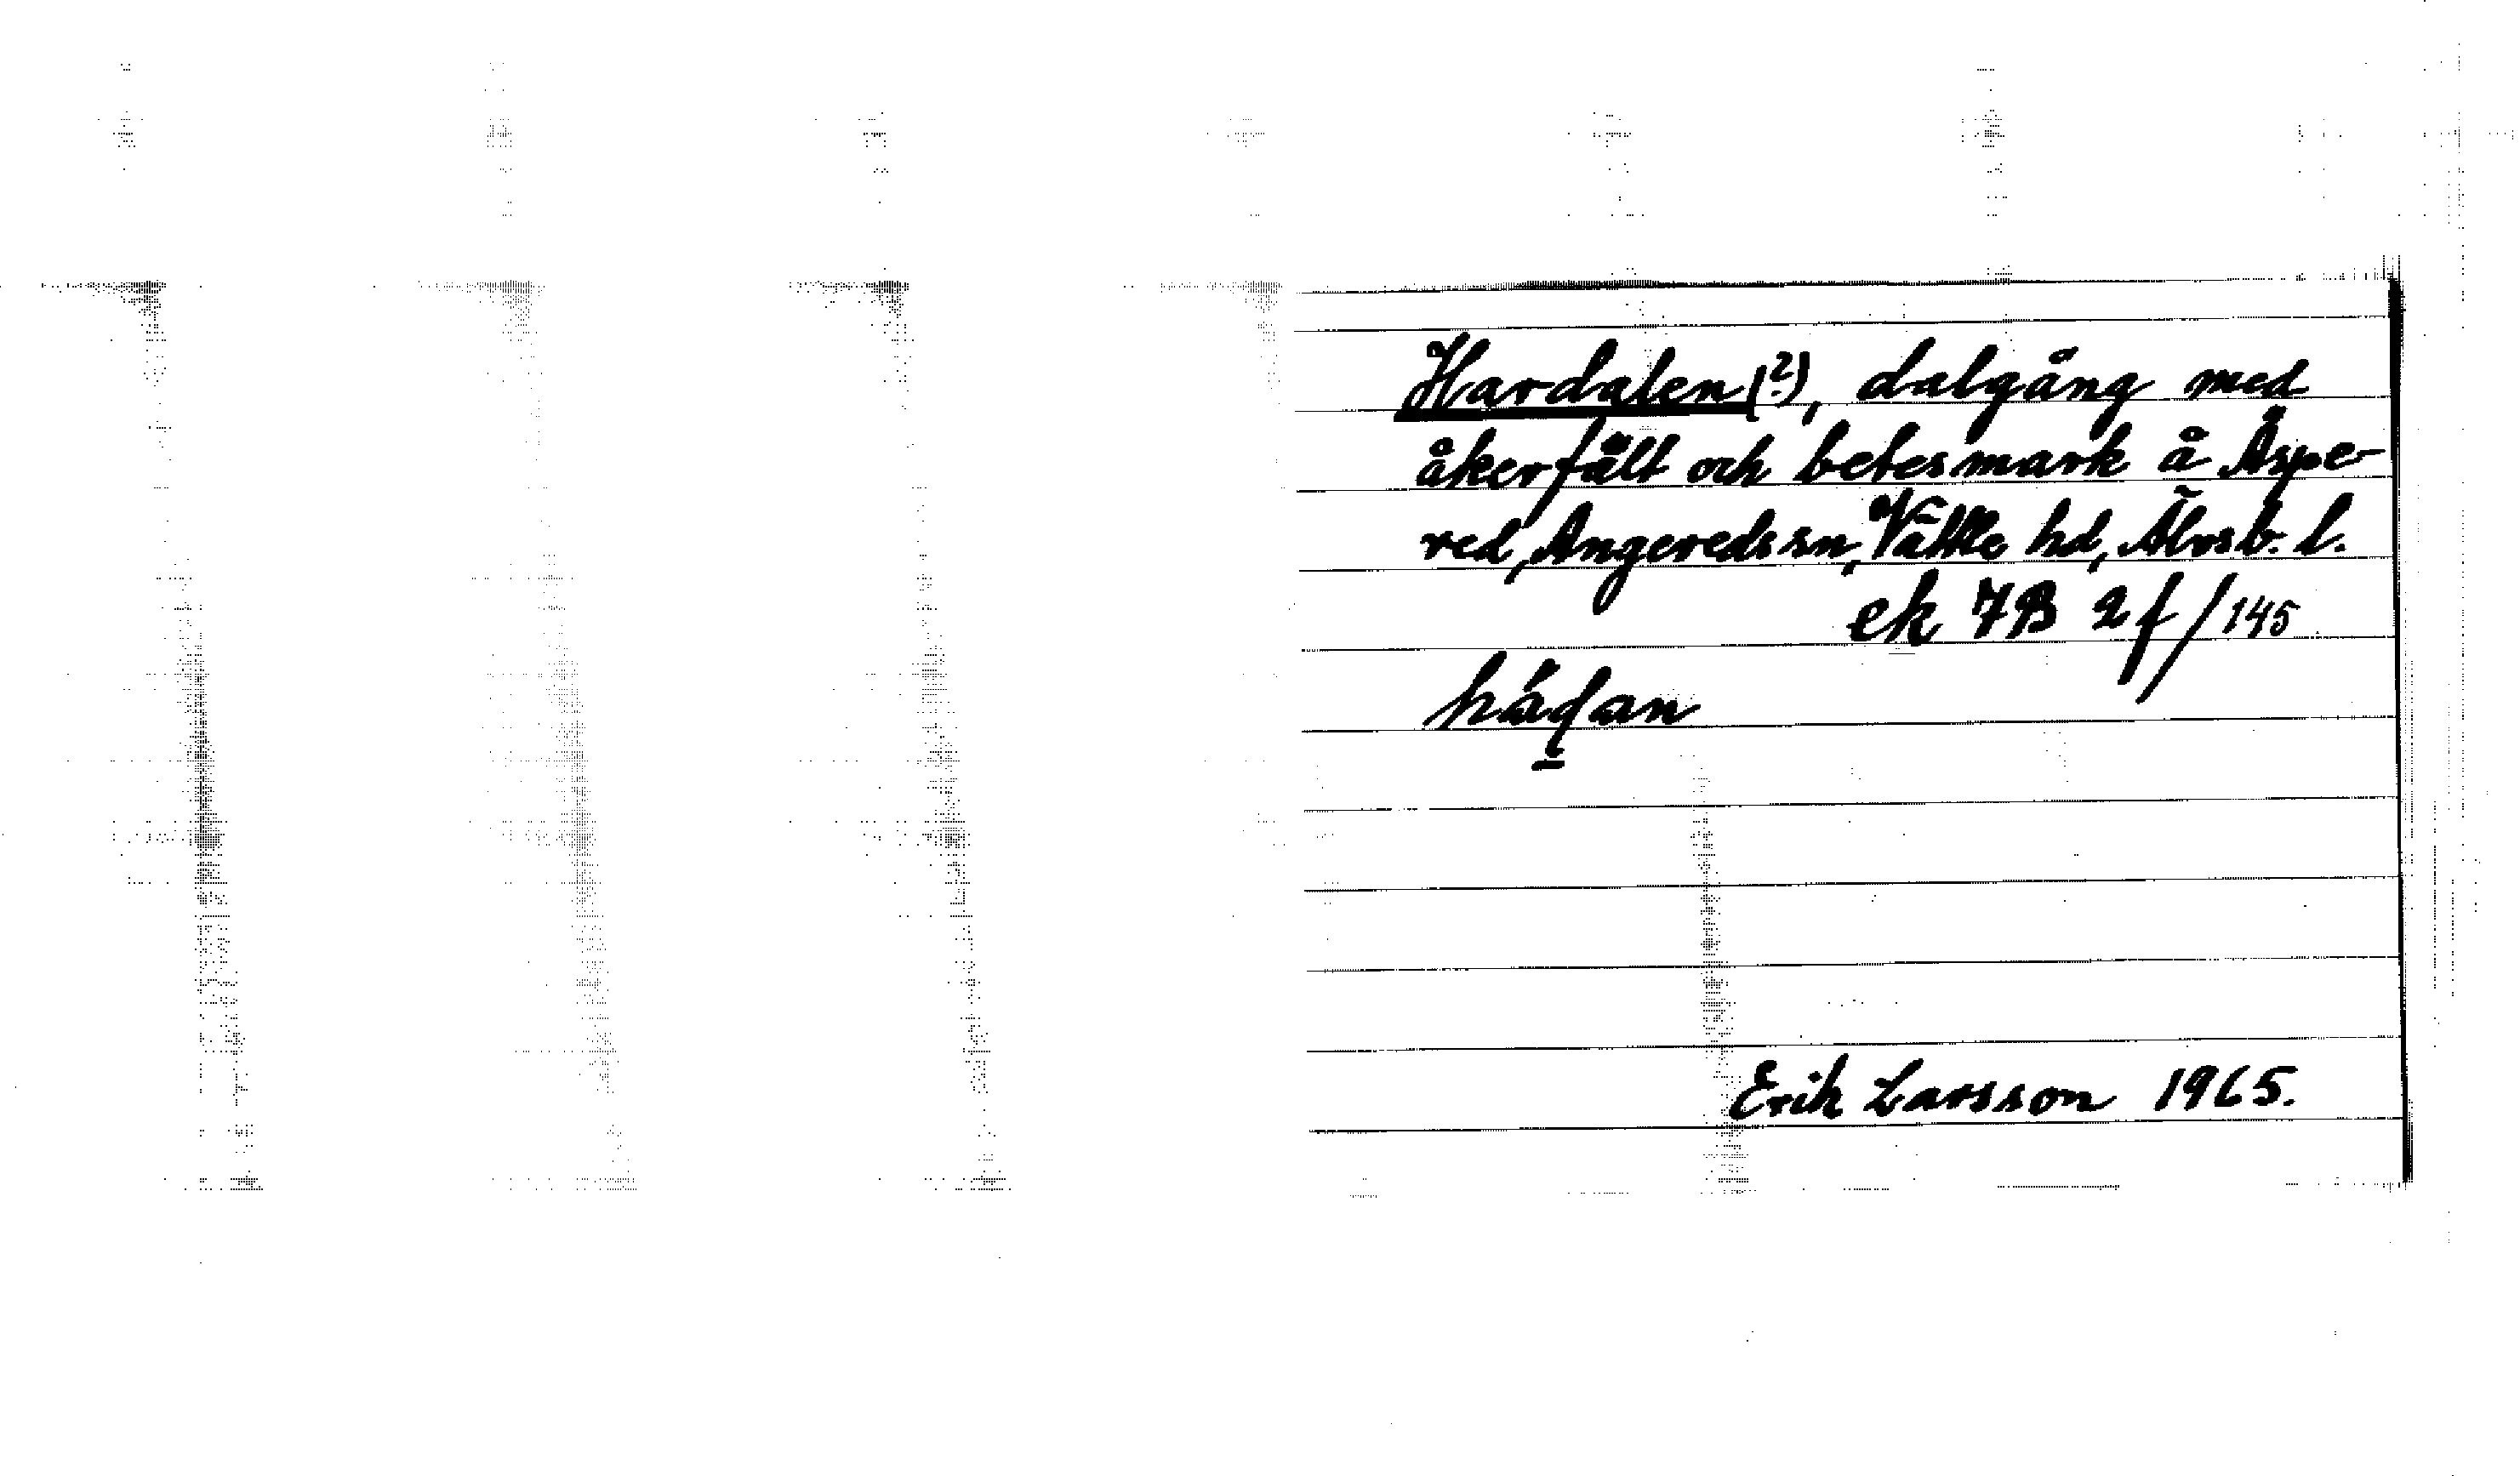 Hardalen(?), dalgång med
åkerfält och betesmark å Äspe-
red, Angereds sn, Vättle hd, Älvsb. l.
ek 7B 2f/145
Erik Larsson 1965.